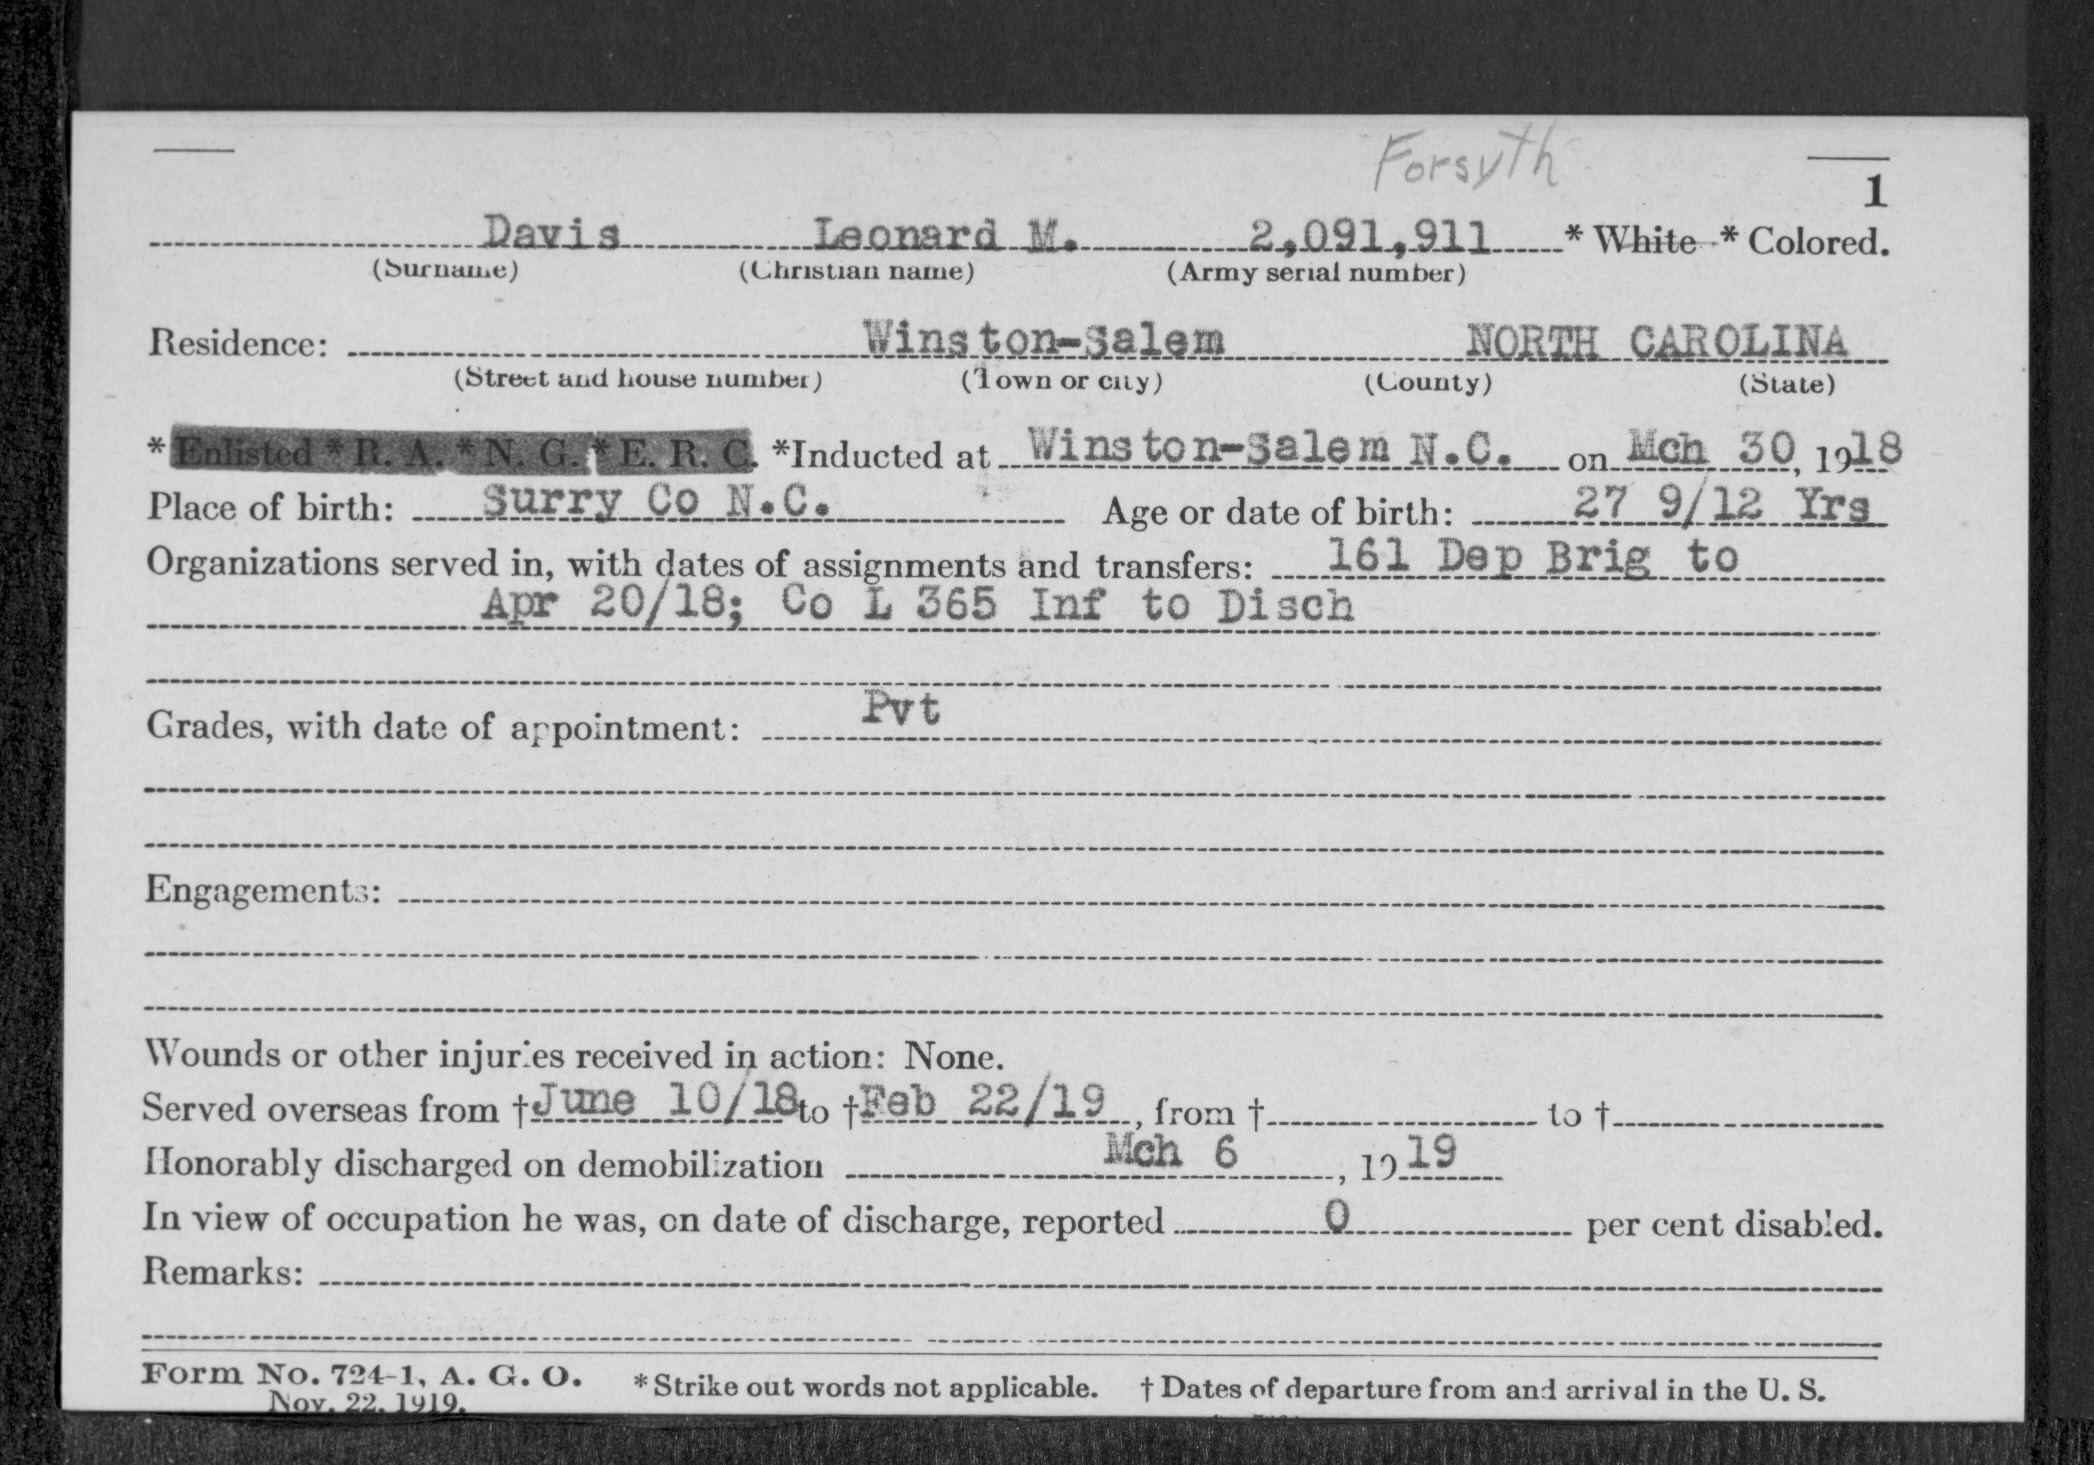 Forsyth
1
Davis Leonard M. 2,091,911 * White * Colored.
(Surname) (Christian name) (Army serial number)
Residence: Winston-Salem NORTH CAROLINA
(Street and house number) (Town or city) (County) (State)
* Enlisted * R. A. * N. G. * E. R. C. *Inducted at Winston-Salem N.C. on Mch 30, 1918
Place of birth: Surry Co N.C. Age or date of birth: 27 9/12 Yrs
Organizations served in, with dates of assignments and transfers: 161 Dep Brig to
Apr 20/18; Co L 365 Inf to Disch
Grades, with date of appointment: Pvt
Engagements:
Wounds or other injuries received in action: None.
Served overseas from † June 10/18 to † Feb 22/19, from † to †
Honorably discharged on demobilization Mch 6, 1919
In view of occupation he was, on date of discharge, reported 0 per cent disabled.
Remarks:
Form No. 724-1, A. G. O. * Strike out words not applicable. † Dates of departure from and arrival in the U. S.
Nov. 22, 1919.